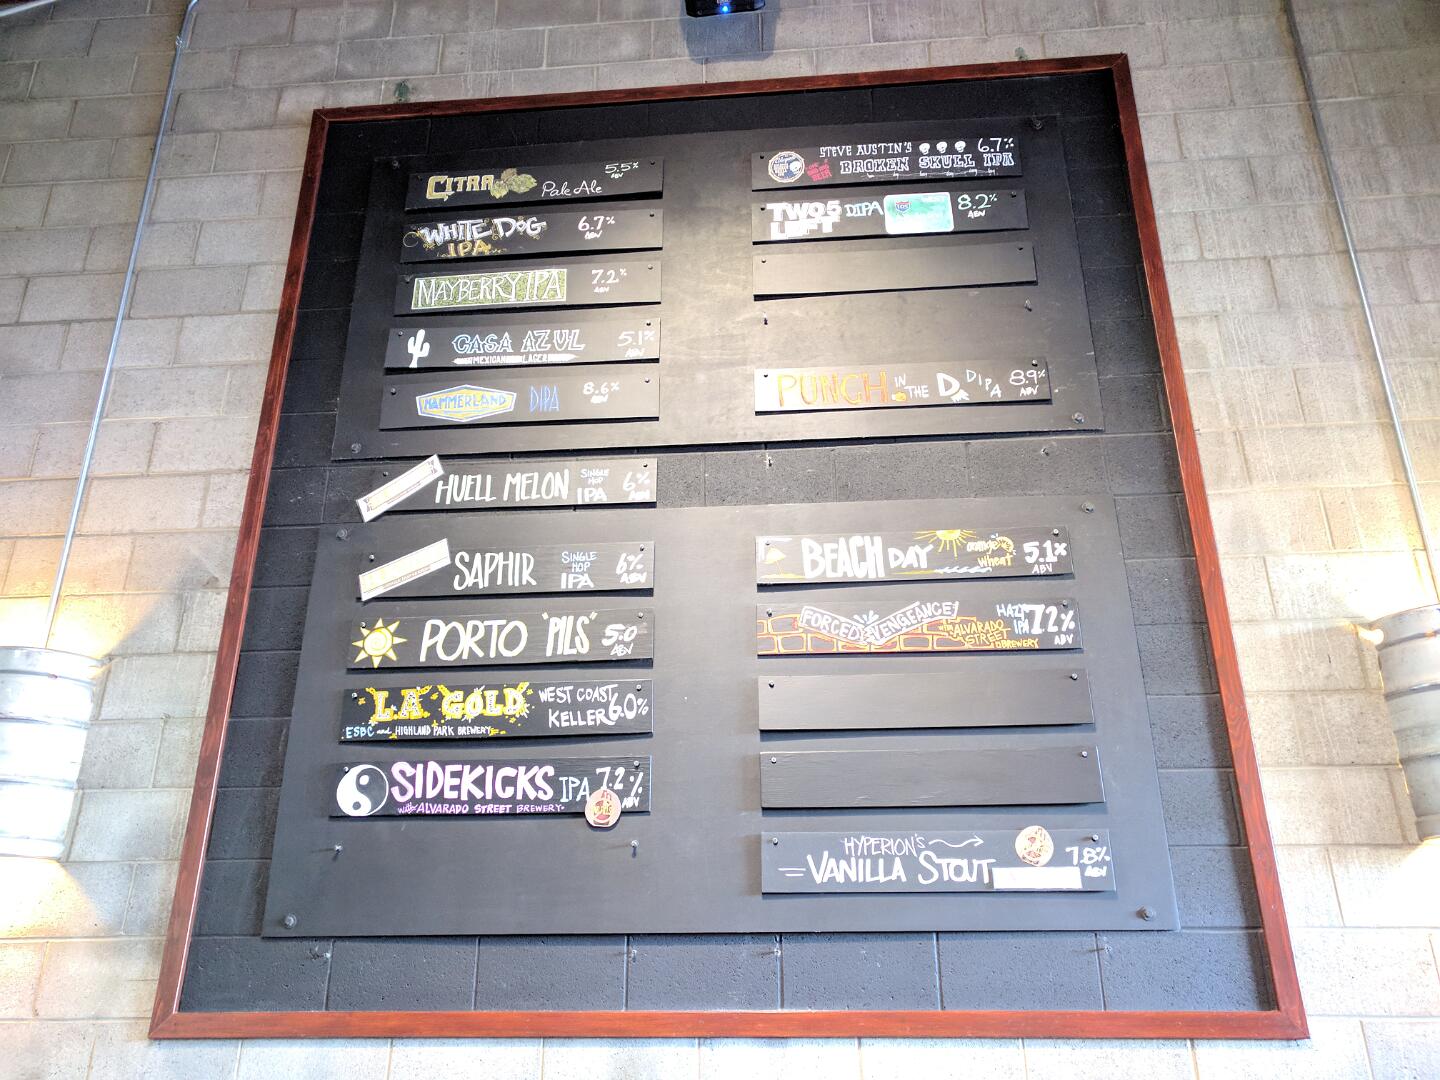 CITRA Pale Ale 5.5% ABV
WHITE DOG IPA 6.7% ABV
MAYBERRY IPA 7.2% ABV
CASA AZUL 5.1% ABV
MEXICAN LAGER
HAMMERLAND DIPA 8.6% ABV
HUELL MELON SINGLE HOP IPA 6% ABV
SAPHIR SINGLE HOP IPA 6% ABV
PORTO "PILS" 5.0 ABV
L.A. GOLD WEST COAST KELLER 6.0%
ESBC and HIGHLAND PARK BREWERY
SIDEKICKS IPA 7.2% ABV
with ALVARADO STREET BREWERY
STEVE AUSTIN'S 6.7%
BROKEN SKULL IPA
TWO 5 LEFT DIPA 8.2% ABV
PUNCH IN THE D DIPA 8.9% ABV
BEACH DAY orange wheat 5.1% ABV
FORCED VENGEANCE HAZY IPA 7.2% ABV
with ALVARADO STREET BREWERY
HYPERION'S
VANILLA STOUT 7.8% ABV